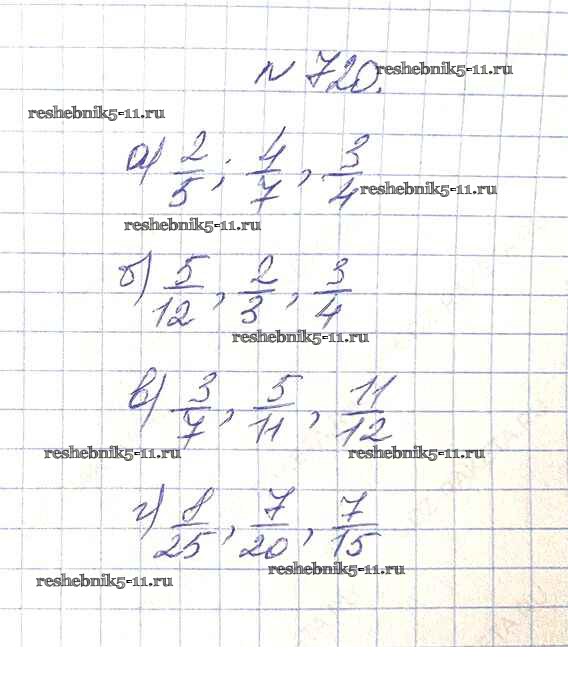 № 720.
reshebnik5-11.ru
reshebnik5-11.ru
а) 2/5; 4/7, 3/4
reshebnik5-11.ru
reshebnik5-11.ru
б) 5/12, 2/3, 3/4
reshebnik5-11.ru
в) 3/7, 5/11, 11/12
reshebnik5-11.ru
reshebnik5-11.ru
г) 8/25, 7/20, 7/15
reshebnik5-11.ru
reshebnik5-11.ru